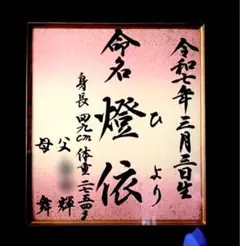 令和七年 三月三日生
命名 燈依
ひより
身長 四九cm 体重 二七五四g
父 輝
母 舞